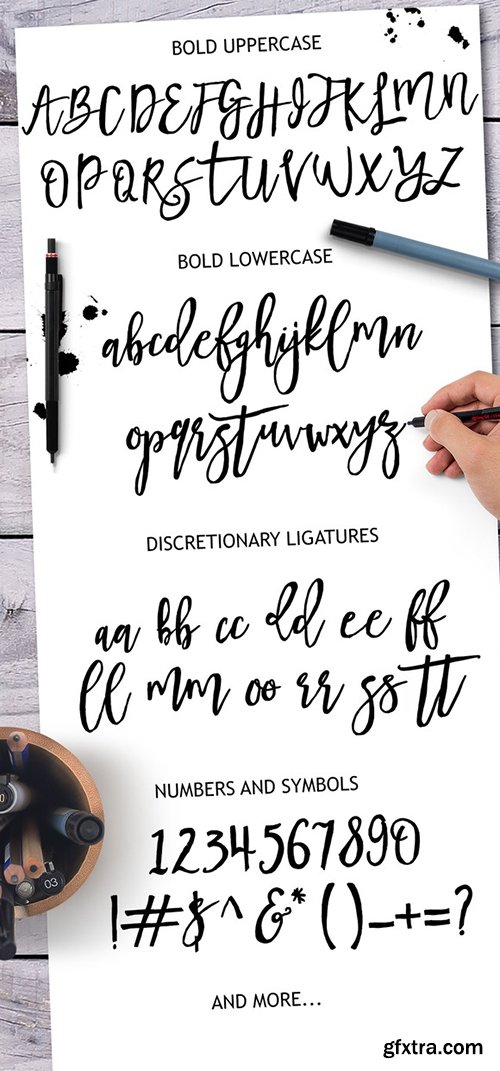 BOLD UPPERCASE
ABCDEFGHIJKLMN
OPQRSTUVWXYZ
BOLD LOWERCASE
abcdefghijklmn
opqrstuvwxyz
DISCRETIONARY LIGATURES
aa bb cc dd ee ff
ll mm oo rr ss tt
NUMBERS AND SYMBOLS
1234567890
!#$^&*()_+=?
AND MORE...
03
gfxtra.com